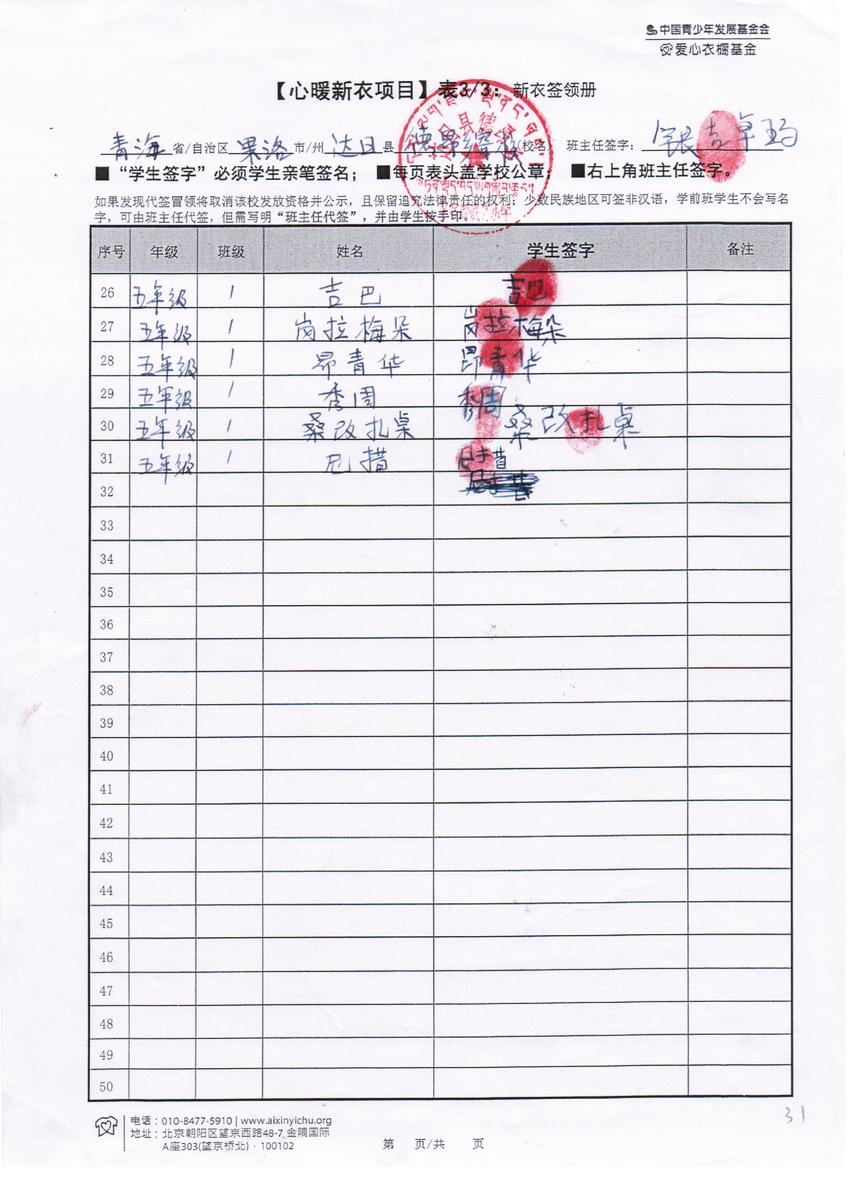 中国青少年发展基金会
爱心衣橱基金
【心暖新衣项目】表3/3：新衣签领册
青海 省/自治区 果洛 市/州 达日 县 德昂 校 (校名) 班主任签字：
■“学生签字”必须学生亲笔签名； ■每页表头盖学校公章； ■右上角班主任签字。
如果发现代签冒领将取消该校发放资格并公示，且保留追究法律责任的权利；少数民族地区可签非汉语，学前班学生不会写名
字，可由班主任代签，但需写明“班主任代签”，并由学生按手印。
序号 年级 班级 姓名 学生签字 备注
26 五年级 1 吉巴 吉巴
27 五年级 1 岗拉梅朵 岗拉梅朵
28 五年级 1 昂青华 昂青华
29 五年级 1 秀周 秀周
30 五年级 1 桑改扎桌 桑改扎桌
31 五年级 1 尼措 尼措
32
33
34
35
36
37
38
39
40
41
42
43
44
45
46
47
48
49
50
电话：010-8477-5910 | www.aixinyichu.org
地址：北京朝阳区望京西路48-7,金隅国际
A座303(望京桥北)·100102
第 页/共 页
31